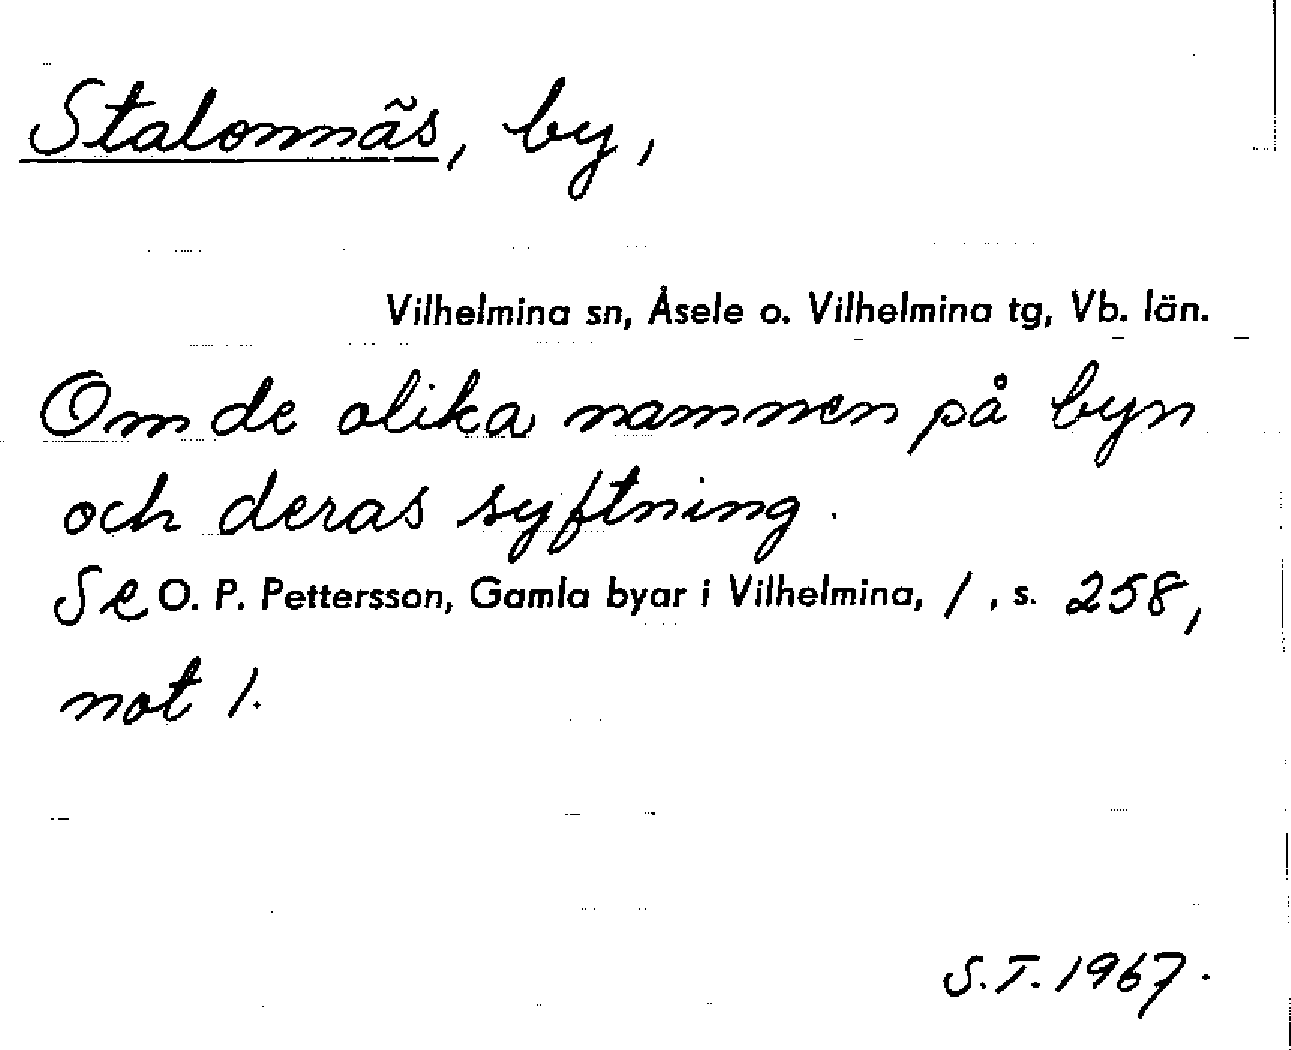 Stalonnäs, by,
Vilhelmina sn, Åsele o. Vilhelmina tg, Vb. län.
Om de olika namnen på byn
och deras syftning.
Se O. P. Pettersson, Gamla byar i Vilhelmina, 1, s. 258,
not 1.
S.T. 1967.